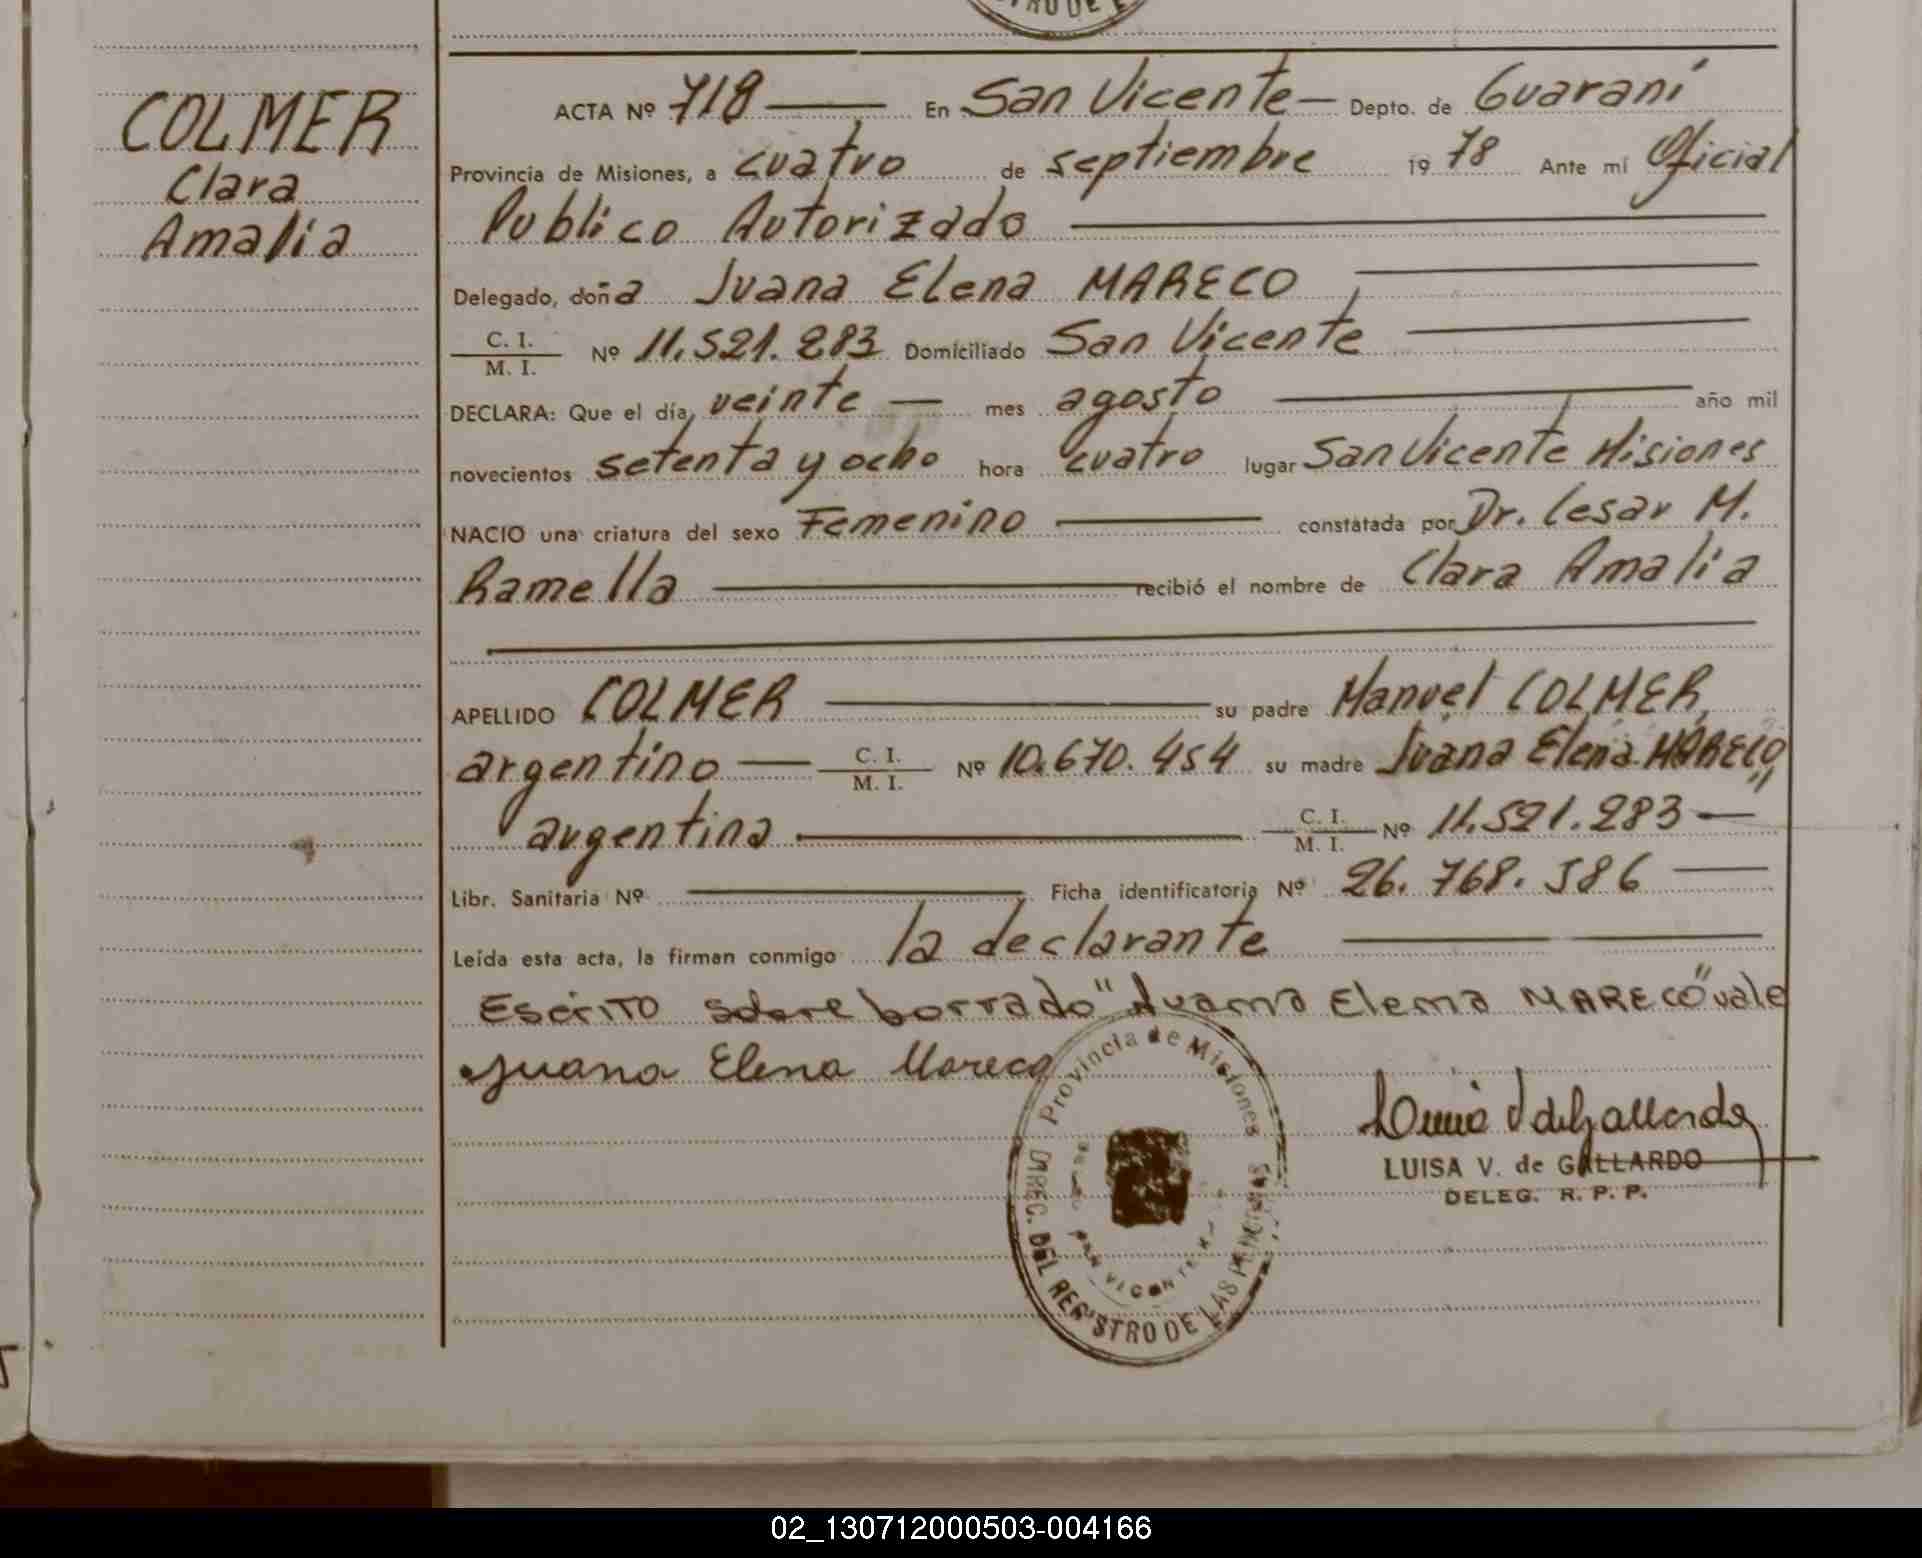 TRO DE
COLMER
Clara
Amalia
ACTA Nº 718 En San Vicente Depto. de Guaraní
Provincia de Misiones, a cuatro de septiembre 19 78 Ante mi Oficial
Publico Autorizado
Delegado, doña Juana Elena MARECO
C. I.
M. I. Nº 11.521.283 Domiciliado San Vicente
DECLARA: Que el día, veinte — mes agosto año mil
novecientos setenta y ocho hora cuatro lugar San Vicente Misiones
NACIO una criatura del sexo Femenino constatada por Dr. Cesar M.
Ramella recibió el nombre de Clara Amalia
APELLIDO COLMER su padre Manuel COLMER,
argentino — C. I. M. I. Nº 10.670.454 su madre Juana Elena MARECO"
argentina C. I. M. I. Nº 11.521.283 —
Libr. Sanitaria Nº Ficha identificatoria Nº 26.768.586 —
Leída esta acta, la firman conmigo la declarante
Escrito sobre borrado "Juana Elena MARECO" vale
Juana Elena Mareco
Provincia de Misiones
DIREC. DEL REGISTRO DE LAS PERSONAS
SAN VICENTE
LUISA V. de GALLARDO
DELEG. R. P. P.
02_130712000503-004166